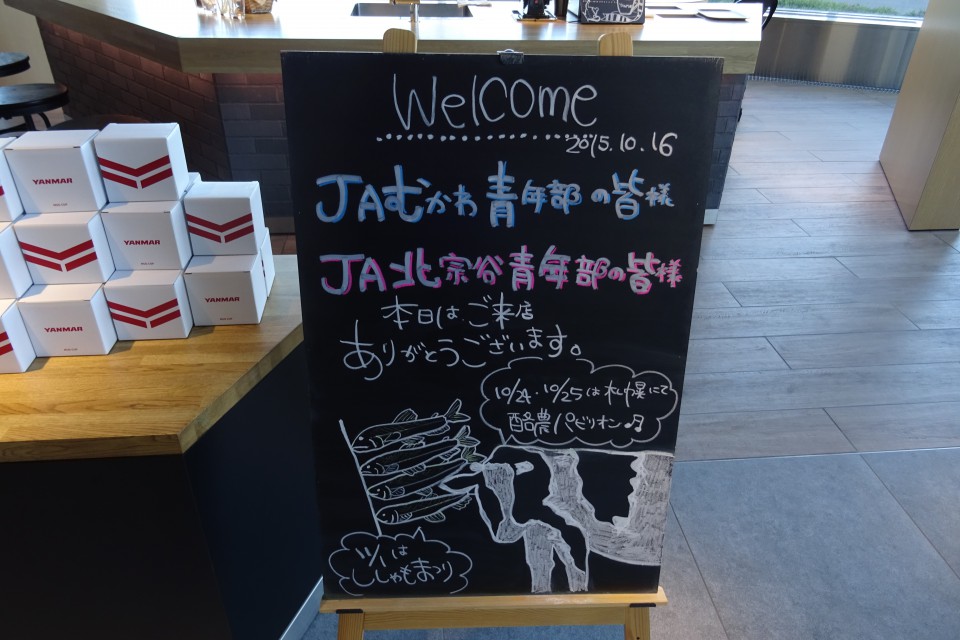 Welcome
2015.10.16
JAむかわ青年部の皆様
JA北宗谷青年部の皆様
本日はご来店
ありがとうございます。
10/24・10/25は札幌にて
酪農パビリオン♫
ししゃもまつり
YANMAR
YANMAR
YANMAR
YANMAR